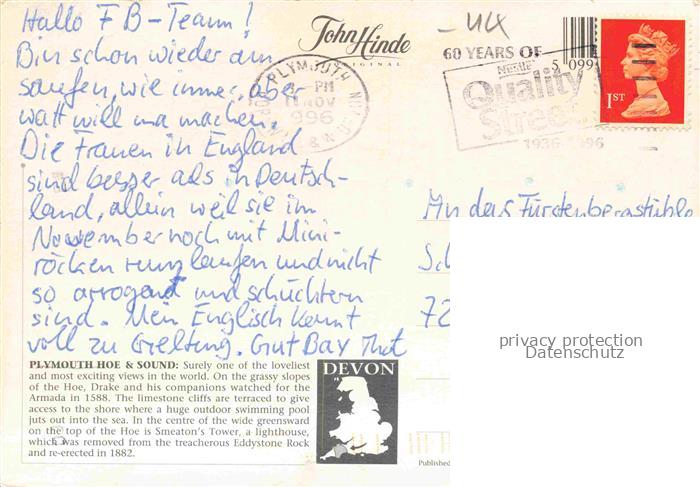 Hallo FB-Team!
Bin schon wieder am
saufen, wie immer, aber
watt will ma machen.
Die Frauen in England
sind besser als in Deutsch-
land, allein weil sie im
November noch mit Mini-
röcken rumlaufen und nicht
so arrogant und schüchtern
sind. Mein Englisch kommt
voll zu Geltung. Gut Bay
John Hinde
ORIGINAL
- UK
60 YEARS OF
Nestlé
Quality
Street
1936-1996
5 099
1ST
PLYMOUTH
PM
11 NOV
1996
An das Fürstenbergstüble
72
privacy protection
Datenschutz
PLYMOUTH HOE & SOUND: Surely one of the loveliest
and most exciting views in the world. On the grassy slopes
of the Hoe, Drake and his companions watched for the
Armada in 1588. The limestone cliffs are terraced to give
access to the shore where a huge outdoor swimming pool
juts out into the sea. In the centre of the wide greensward
on the top of the Hoe is Smeaton's Tower, a lighthouse,
which was removed from the treacherous Eddystone Rock
and re-erected in 1882.
DEVON
Published